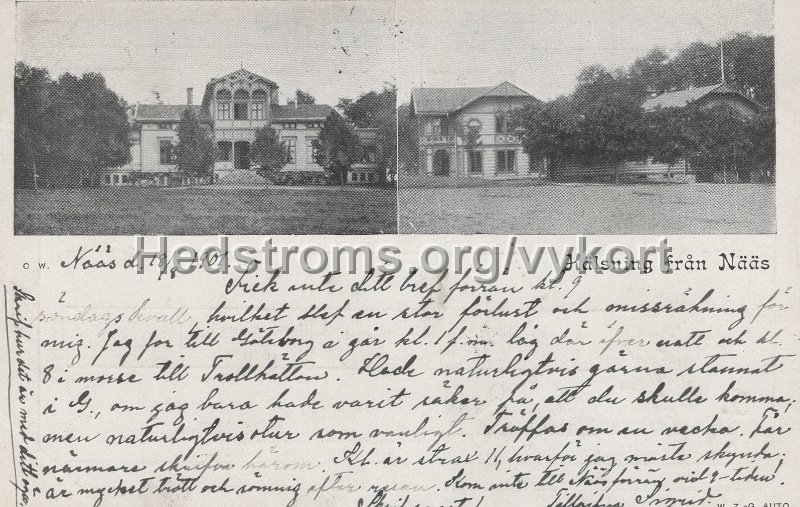 Hedstroms.org/vykort
C W.
Nääs d. 19/8 1901.
Hälsning från Nääs
Fick inte ditt bref förrän kl. 9
i söndags kväll, hvilket blef en stor förlust och missräkning för
mig. Jag for till Göteborg i går kl. 1 f.m. låg där öfver natt och kl.
8 i morse till Trollhättan. Hade naturligtvis gärna stannat
i G., om jag bara hade varit säker på, att du skulle komma,
men naturligtvis otur som vanligt. Träffas om en vecka. Får
närmare skrifva härom. Kl. är strax 11, hvarför jag måste skynda;
är mycket trött och sömnig efter resan. Kom inte till Nääs förrän vid 9-tiden!
Skrif snart! Tillgifna Sigrid.
W. Z.-G. AUTO
Skrif hur det är med ditt öga.